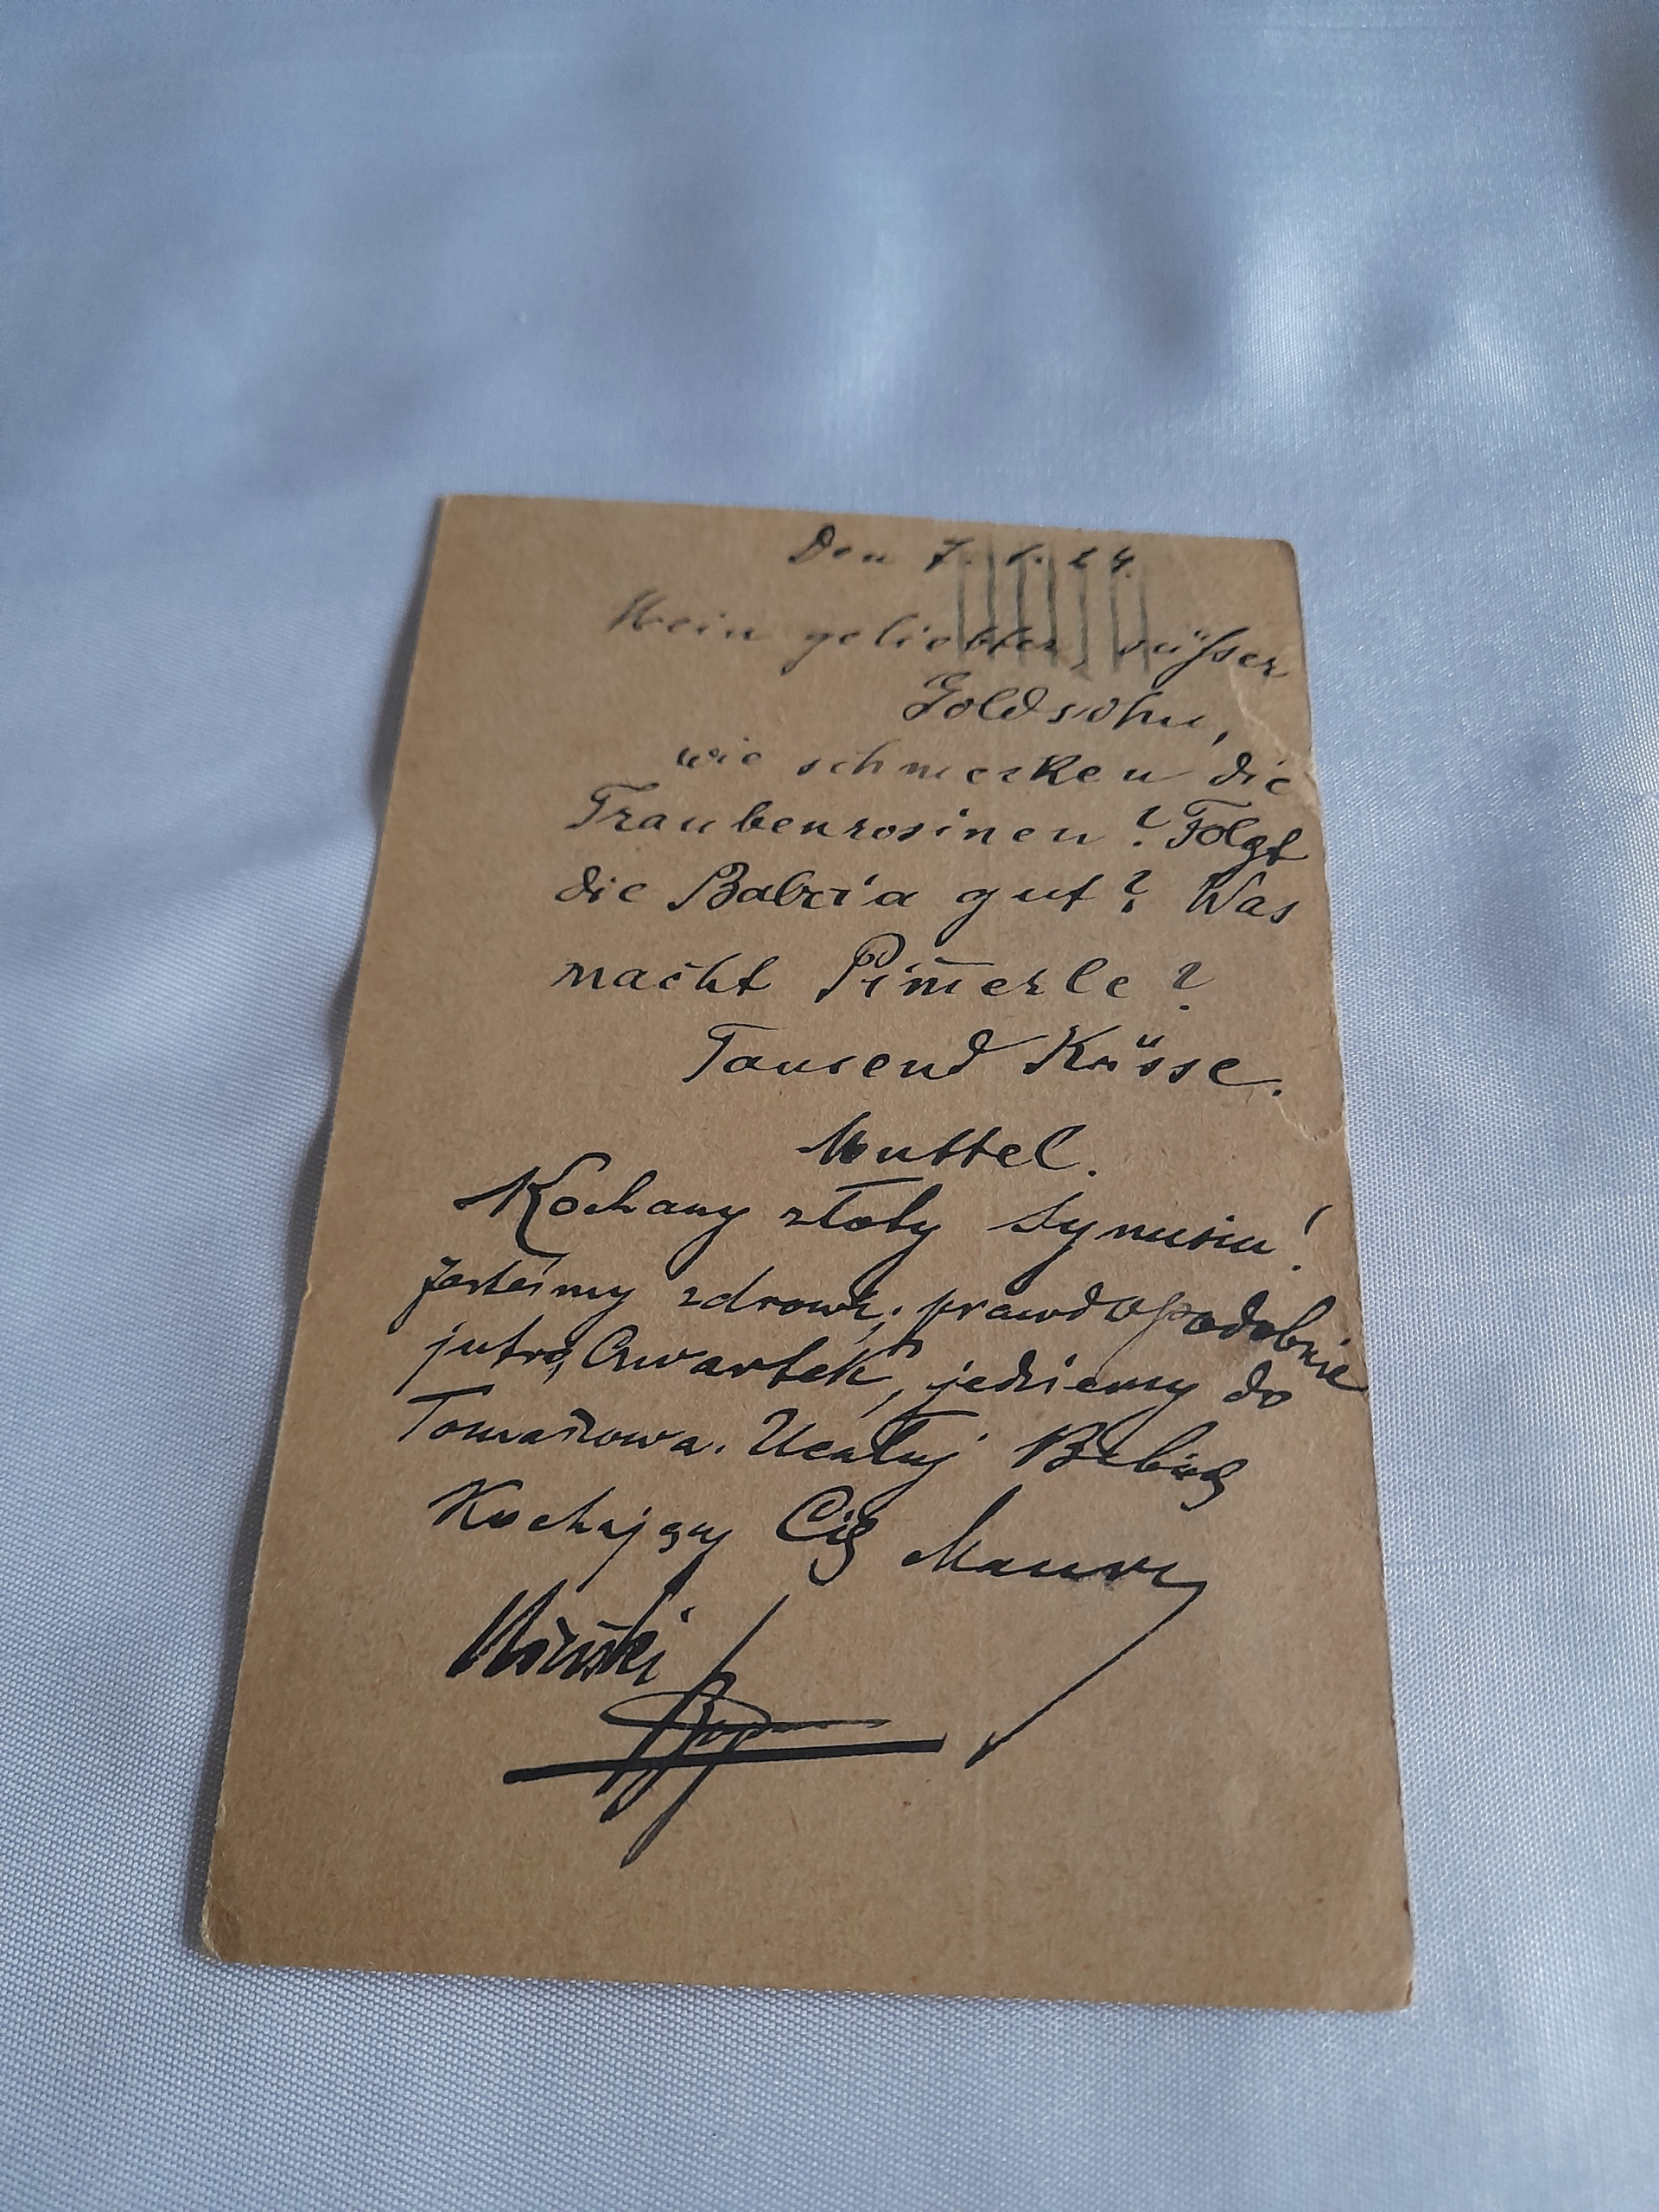 Den 7. 24.
Mein geliebter, süßer
Goldsohn,
wie schmecken die
Traubenrosinen? Folgt
die Babcia gut? Was
macht Pim̄erle?
Tausend Küsse.
Muttel.
Kochany złoty Synusiu!
Jesteśmy zdrowi; prawdopodobnie
jutro, Czwartek, jedziemy do
Tomaszowa. Ucałuj Babcię
Kochający Cię